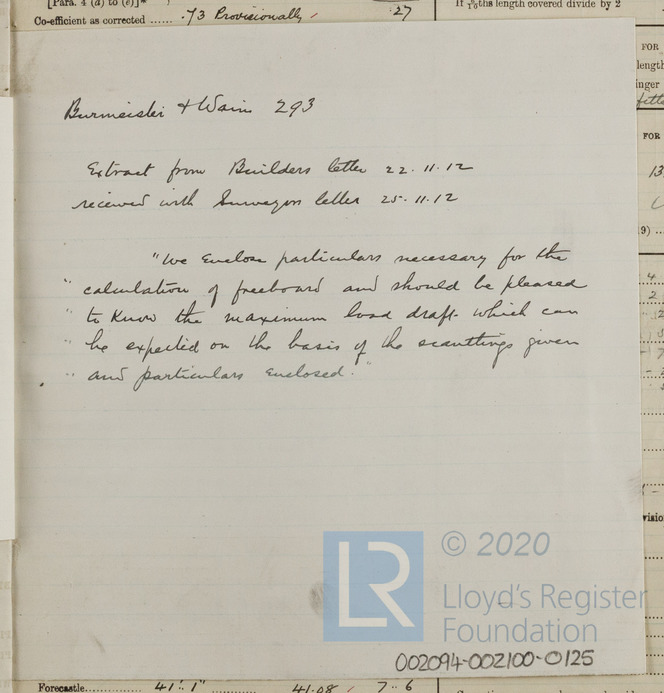 [Para. 4 (d) to (e)]*
Co-efficient as corrected ...... .73 Provisionally
27
If 5/10ths length covered divide by 2
FOR
length
inger
FOR
13
9) ...
Burmeister & Wain 293
Extract from Builders letter 22.11.12
received with Surveyors letter 25.11.12
"We enclose particulars necessary for the
" calculation of freeboard and should be pleased
" to know the maximum load draft which can
" be expected on the basis of the scanttings given
" and particulars enclosed."
4
2
LR
© 2020
Lloyd's Register
Foundation
002094-002100-0125
Forecastle............ 41' 1" 41.08 7-6